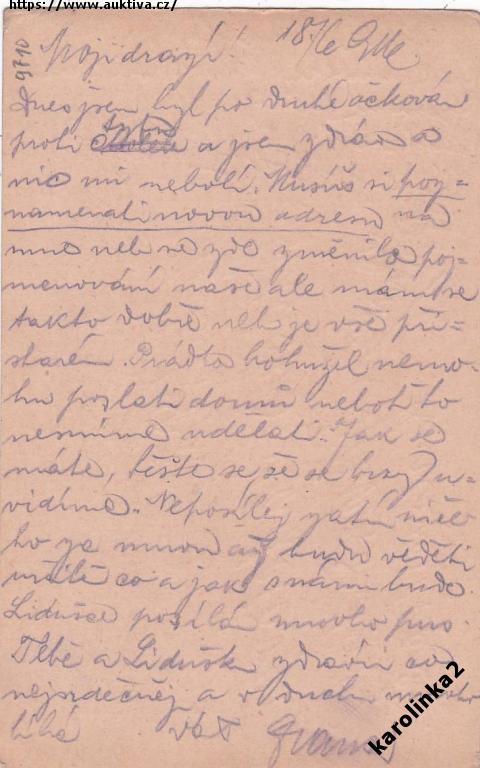 https://www.auktiva.cz/
9710
Moji drazí! 18/6
Dnes jsem byl po druhé očkován
proti a jsem zdráv a
nic mi nebolí. Musíš si poz-
namenati novou adresu na
mne neb se zde změnilo poj-
menování naše ale mám se
takto dobře neb je vše při
starém. Prádlo bohužel nemo-
hu poslati domů neboť to
nesmíme udělati. Jak se
máte, těšte se že se brzy u-
vidíme. Neposílej zatím niče-
ho ze až budu věděti
určitě co a jak s námi bude.
Lidušce posílám mnoho pus.
Tebe a Lidušku zdraví co
nejsrdečněj a v duchu mnoho
líbá Váš
karolinka2